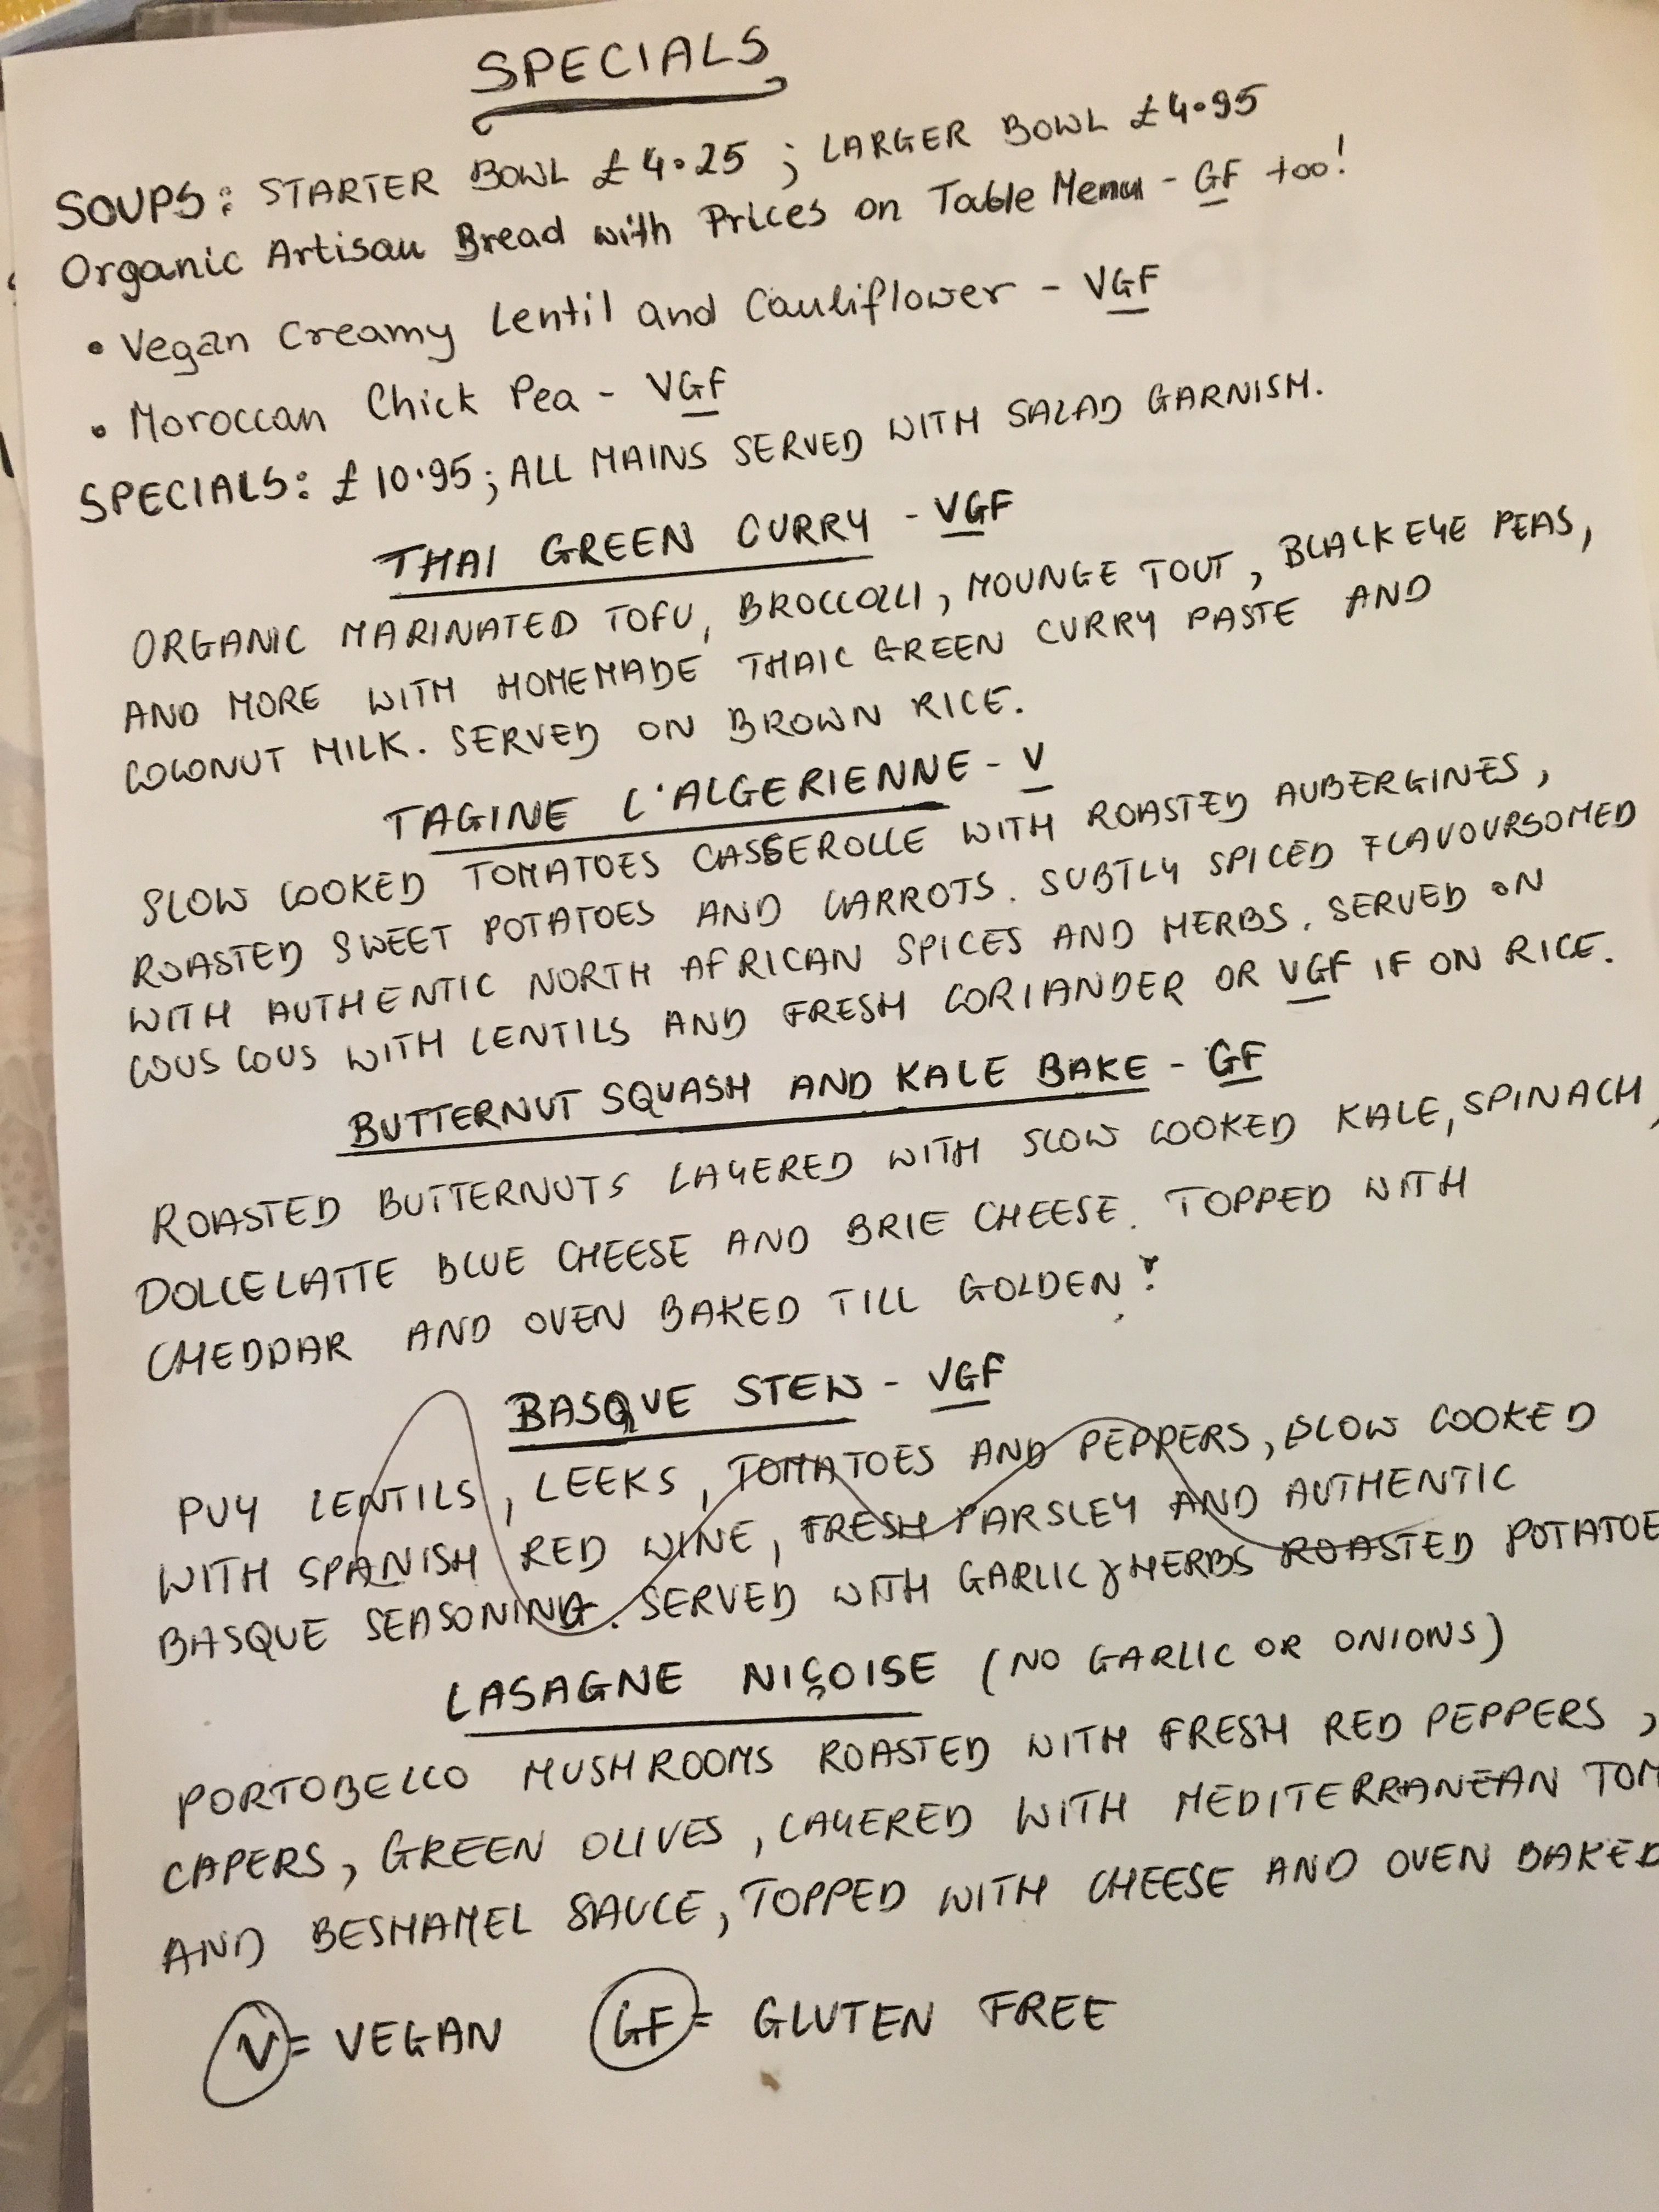 SPECIALS
SOUPS: STARTER BOWL £4.25 ; LARGER BOWL £4.95
Organic Artisan Bread with Prices on Table Menu - GF too!
• Vegan Creamy Lentil and Cauliflower - VGF
• Moroccan Chick Pea - VGF
SPECIALS: £10.95; ALL MAINS SERVED WITH SALAD GARNISH.
THAI GREEN CURRY - VGF
ORGANIC MARINATED TOFU, BROCCOLLI, MOUNGE TOUT, BLACK EYE PEAS,
AND MORE WITH HOMEMADE THAIC GREEN CURRY PASTE AND
COCONUT MILK. SERVED ON BROWN RICE.
TAGINE L'ALGERIENNE - V
SLOW COOKED TOMATOES CASSEROLLE WITH ROASTED AUBERGINES,
ROASTED SWEET POTATOES AND CARROTS. SUBTLY SPICED FLAVOURSOMED
WITH AUTHENTIC NORTH AFRICAN SPICES AND HERBS. SERVED ON
COUS COUS WITH LENTILS AND FRESH CORIANDER OR VGF IF ON RICE.
BUTTERNUT SQUASH AND KALE BAKE - GF
ROASTED BUTTERNUTS LAYERED WITH SLOW COOKED KALE, SPINACH,
DOLCELATTE BLUE CHEESE AND BRIE CHEESE. TOPPED WITH
CHEDDAR AND OVEN BAKED TILL GOLDEN!
BASQUE STEW - VGF
PUY LENTILS, LEEKS, TOMATOES AND PEPPERS, SLOW COOKED
WITH SPANISH RED WINE, FRESH PARSLEY AND AUTHENTIC
BASQUE SEASONING. SERVED WITH GARLIC & HERBS ROASTED POTATOE
LASAGNE NIÇOISE (NO GARLIC OR ONIONS)
PORTOBELLO MUSHROOMS ROASTED WITH FRESH RED PEPPERS,
CAPERS, GREEN OLIVES, LAYERED WITH MEDITERRANEAN TOM
AND BESHAMEL SAUCE, TOPPED WITH CHEESE AND OVEN BAKED
V = VEGAN GF = GLUTEN FREE